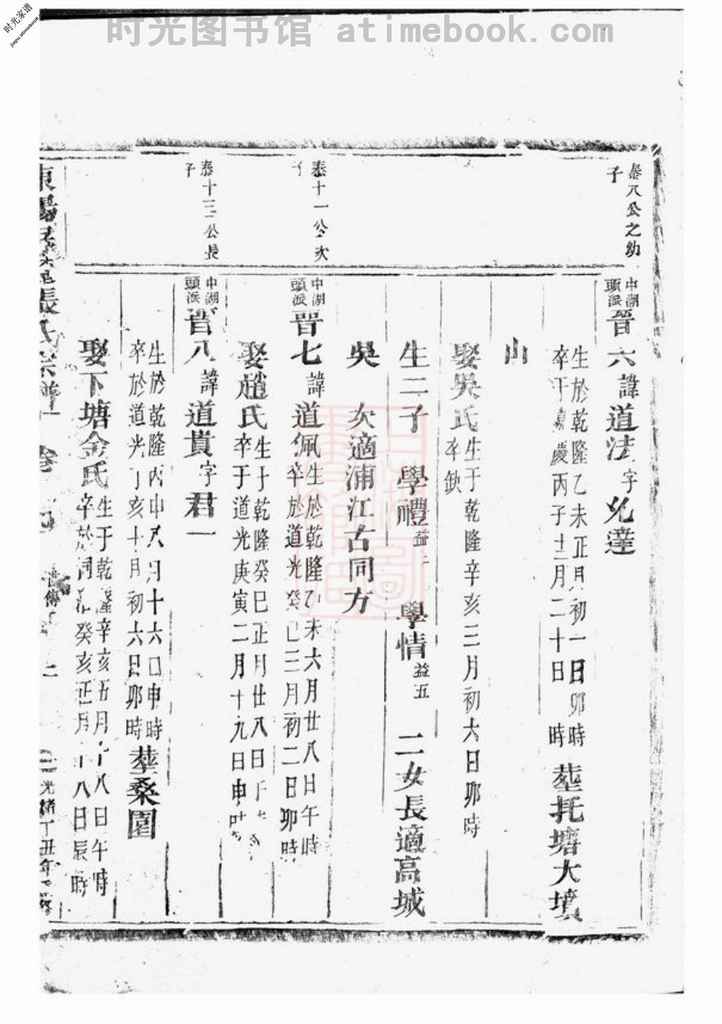 时光图书馆 atimebook.com
时光家谱
泰八公之幼
子
中湖
頭派
晋六諱道法字
生於乾隆乙未正月初一日卯時
卒于嘉慶丙子十二月二十日 時
塟托塘大墳
山
娶吳氏
生于乾隆辛亥三月初六日卯時
卒缺
生二子 學禮 學情益五 二女長適高城
吳 次適浦江古同方
泰十一公次
子
中湖
頭派
晋七諱道佩
生於乾隆乙未六月廿八日午時
卒於道光癸巳三月初二日卯時
娶趙氏
生于乾隆癸巳正月廿八日
卒于道光庚寅二月十九日申時
泰十三公長
子
中湖
頭派
晋八諱道貴字君一
生於乾隆丙申八月十六日申時
卒於道光丁亥十月初六日卯時
塟桑園
娶下塘金氏
生于乾隆辛亥五月十八日午時
卒於同治癸亥正月十八日辰時
張氏宗譜
光緒丁丑年